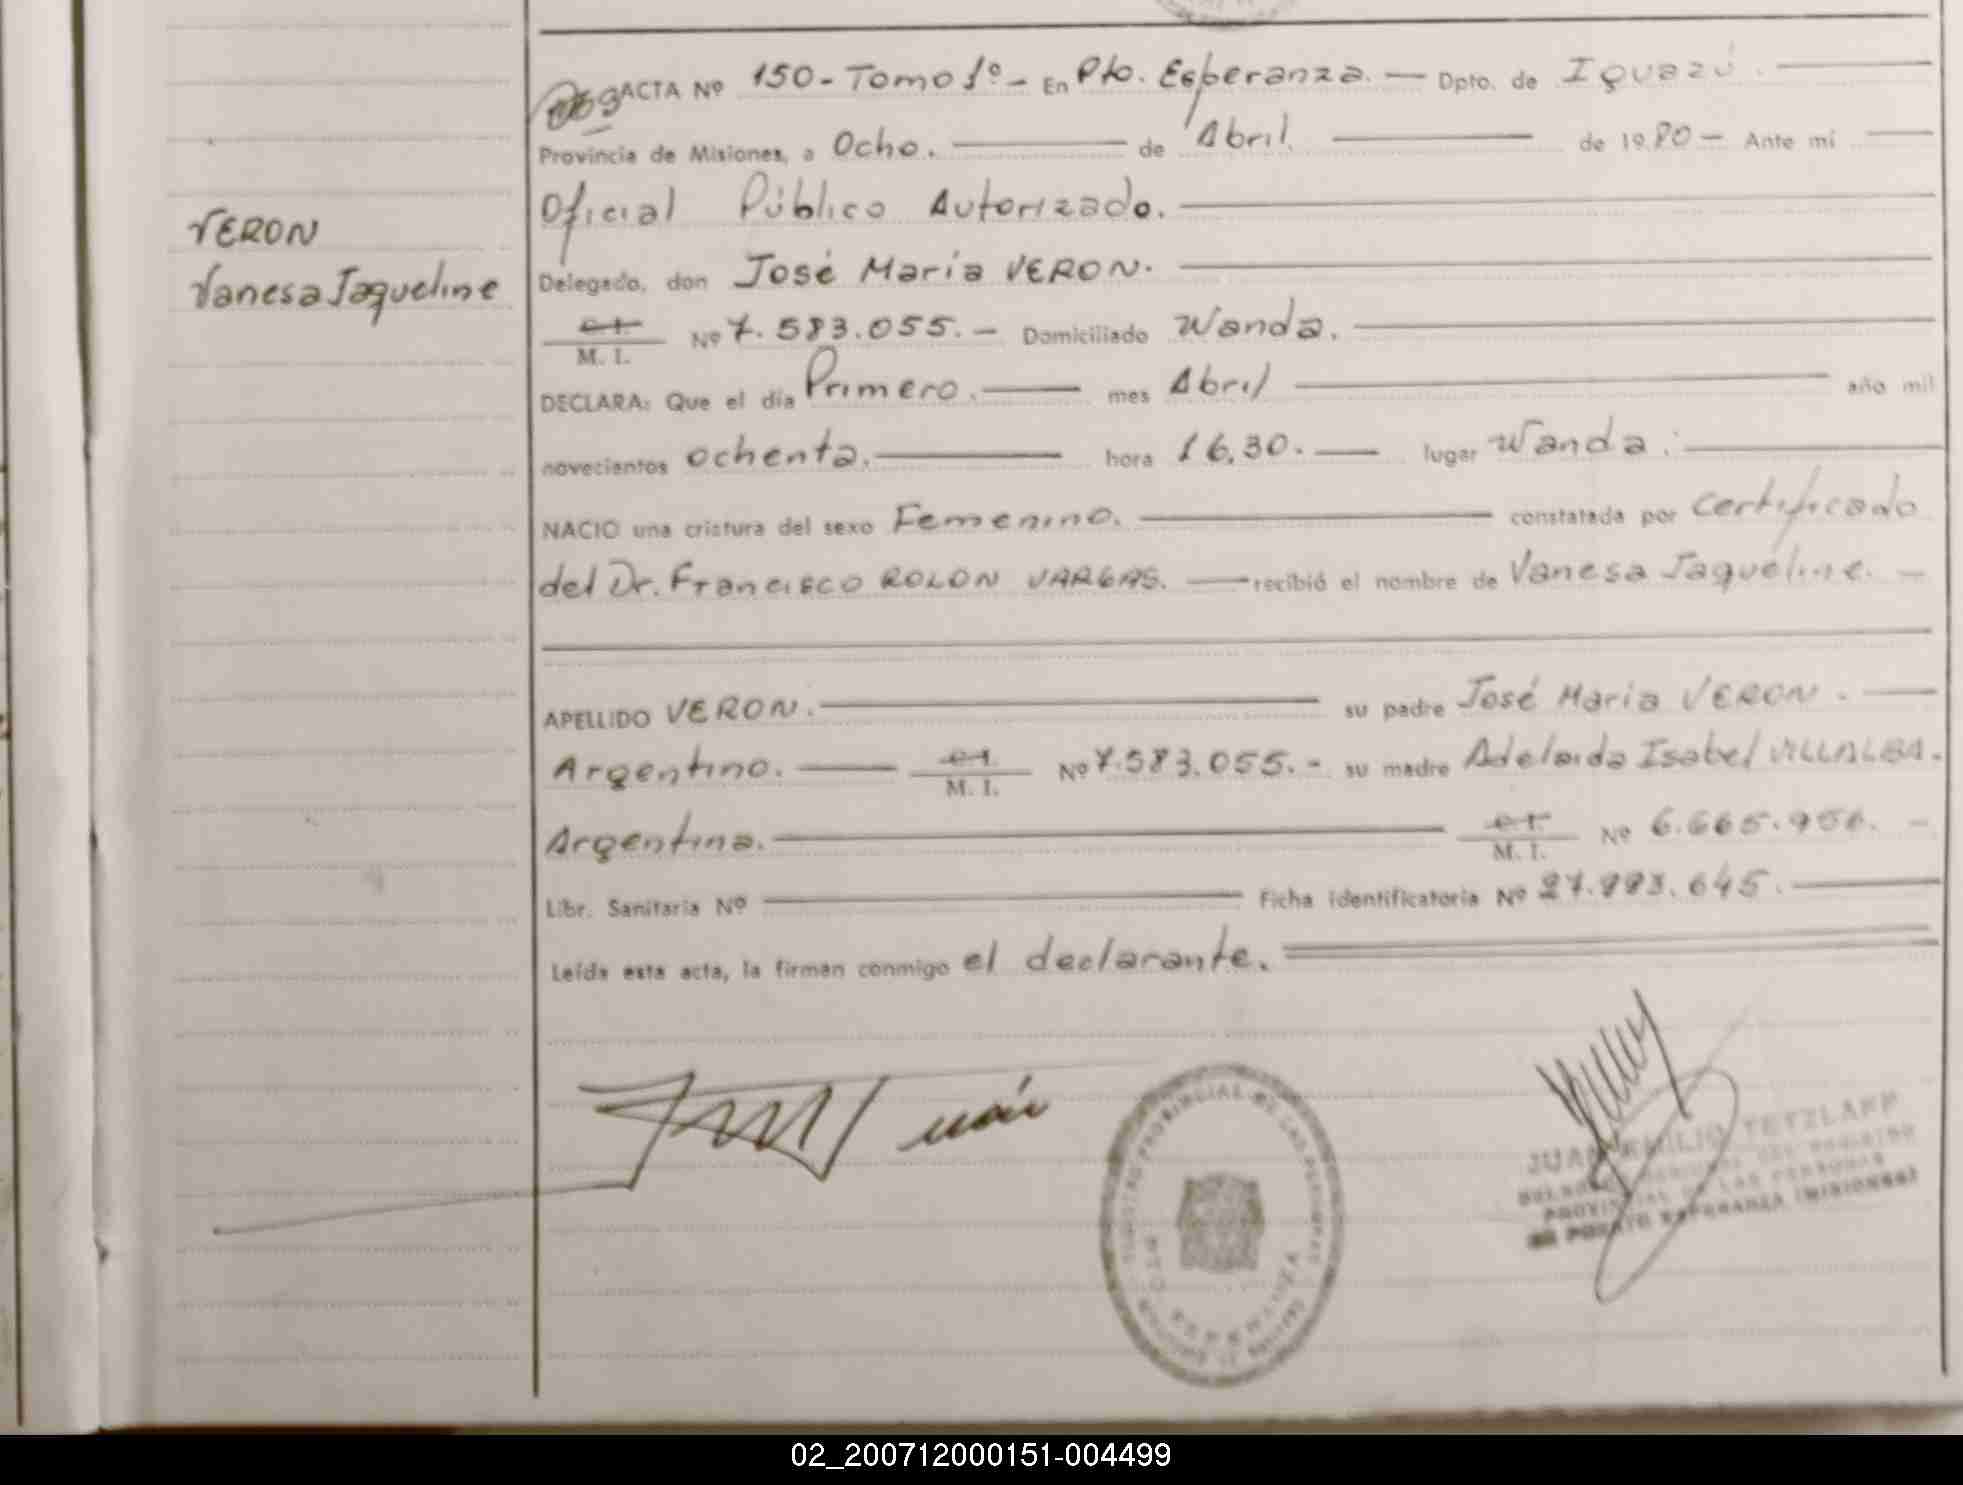 ACTA Nº 150 - Tomo 1º - En Pto. Esperanza. — Dpto. de Iguazú.
Provincia de Misiones, a Ocho. de Abril. de 1980 - Ante mí
Oficial Público Autorizado.
VERON
Vanesa Jaqueline
Delegado, don José María VERON.
C.I.
M. I. Nº 7.583.055. - Domiciliado Wanda.
DECLARA: Que el día Primero. mes Abril año mil
novecientos ochenta. hora 16,30. lugar Wanda.
NACIO una criatura del sexo Femenino. constatada por Certificado
del Dr. Francisco ROLON VARGAS. recibió el nombre de Vanesa Jaqueline. -
APELLIDO VERON. su padre José María VERON.
Argentino. C.I. M. I. Nº 7.583.055. - su madre Adelaida Isabel VILLALBA.
Argentina. C.I. M. I. Nº 6.665.956. -
Libr. Sanitaria Nº Ficha identificatoria Nº 27.993.645.
Leída esta acta, la firman conmigo el declarante.
REGISTRO PROVINCIAL DE LAS PERSONAS
PTO. ESPERANZA
JUAN EMILIO TETZLAFF
REGISTRO
PROVINCIAL DE LAS PERSONAS
DE PUERTO ESPERANZA (MISIONES)
02_200712000151-004499